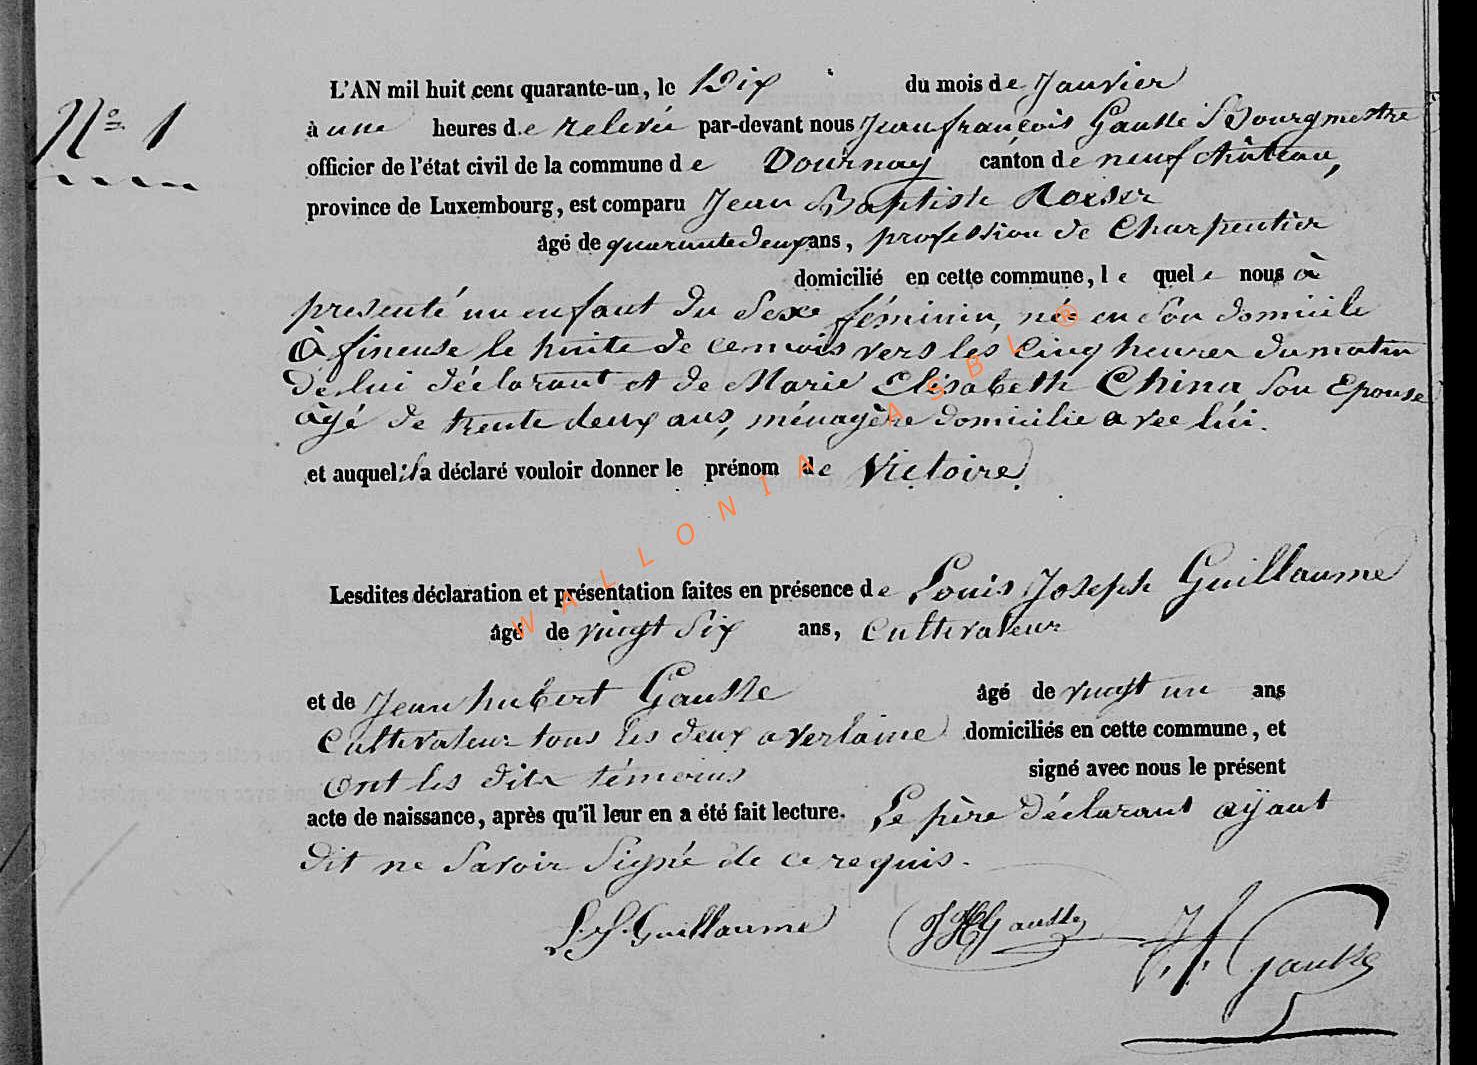 L'AN mil huit cent quarante-un, le Dix du mois de Janvier
N° 1
à une heures de relevée par-devant nous Jean françois Gausse Bourgmestre
officier de l'état civil de la commune de Tournay canton de neufchâteau,
province de Luxembourg, est comparu Jean Baptiste
âgé de quarante deux ans, profession de Charpentier
domicilié en cette commune, le quel e nous à
presenté un enfant du Sexe féminin, né en Son domicile
à fineuse le huite de ce mois vers les Cinq heures du matin
de lui déclarant et de Marie Elisabeth China Son Epouse
âgé de trente deux ans, ménagère domicilie avec lui.
et auquel il a déclaré vouloir donner le prénom de Victoire.
Lesdites déclaration et présentation faites en présence de Louis Joseph Guillaume
âgé de vingt Six ans, Cultivateur
et de Jean hubert Gausse âgé de vingt un ans
Cultivateur tous les deux a verlaine domiciliés en cette commune, et
ont les dits témoins signé avec nous le présent
acte de naissance, après qu'il leur en a été fait lecture. Le père déclarant aÿant
dit ne Savoir Signé de ce requis.
L. J. Guillaume JHGausse JF Gausse
WALLONIA ASBL ®